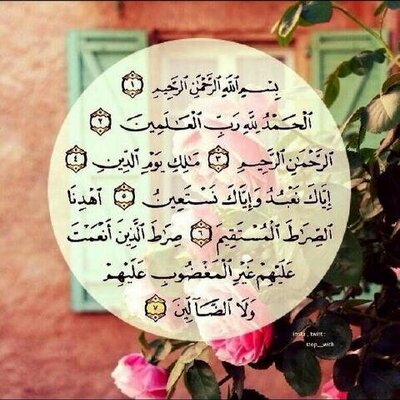 بِسْمِ ٱللَّهِ ٱلرَّحْمَٰنِ ٱلرَّحِيمِ ١
ٱلْحَمْدُ لِلَّهِ رَبِّ ٱلْعَٰلَمِينَ ٢
ٱلرَّحْمَٰنِ ٱلرَّحِيمِ ٣ مَٰلِكِ يَوْمِ ٱلدِّينِ ٤
إِيَّاكَ نَعْبُدُ وَإِيَّاكَ نَسْتَعِينُ ٥ ٱهْدِنَا
ٱلصِّرَٰطَ ٱلْمُسْتَقِيمَ ٦ صِرَٰطَ ٱلَّذِينَ أَنْعَمْتَ
عَلَيْهِمْ غَيْرِ ٱلْمَغْضُوبِ عَلَيْهِمْ
وَلَا ٱلضَّآلِّينَ ٧
insta , twitt :